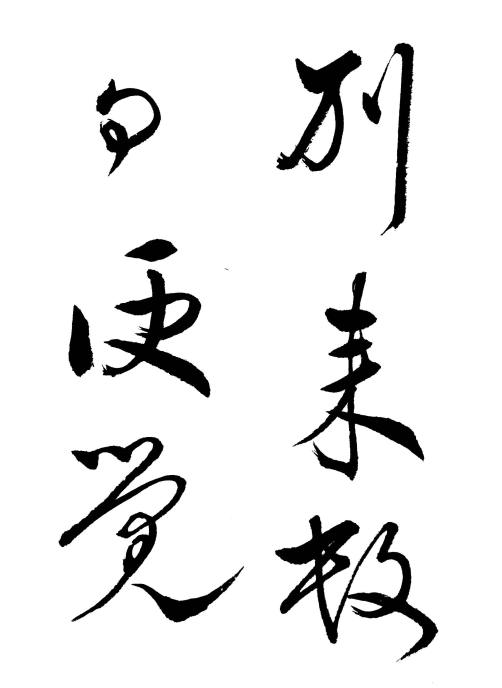 别来数
日便觉